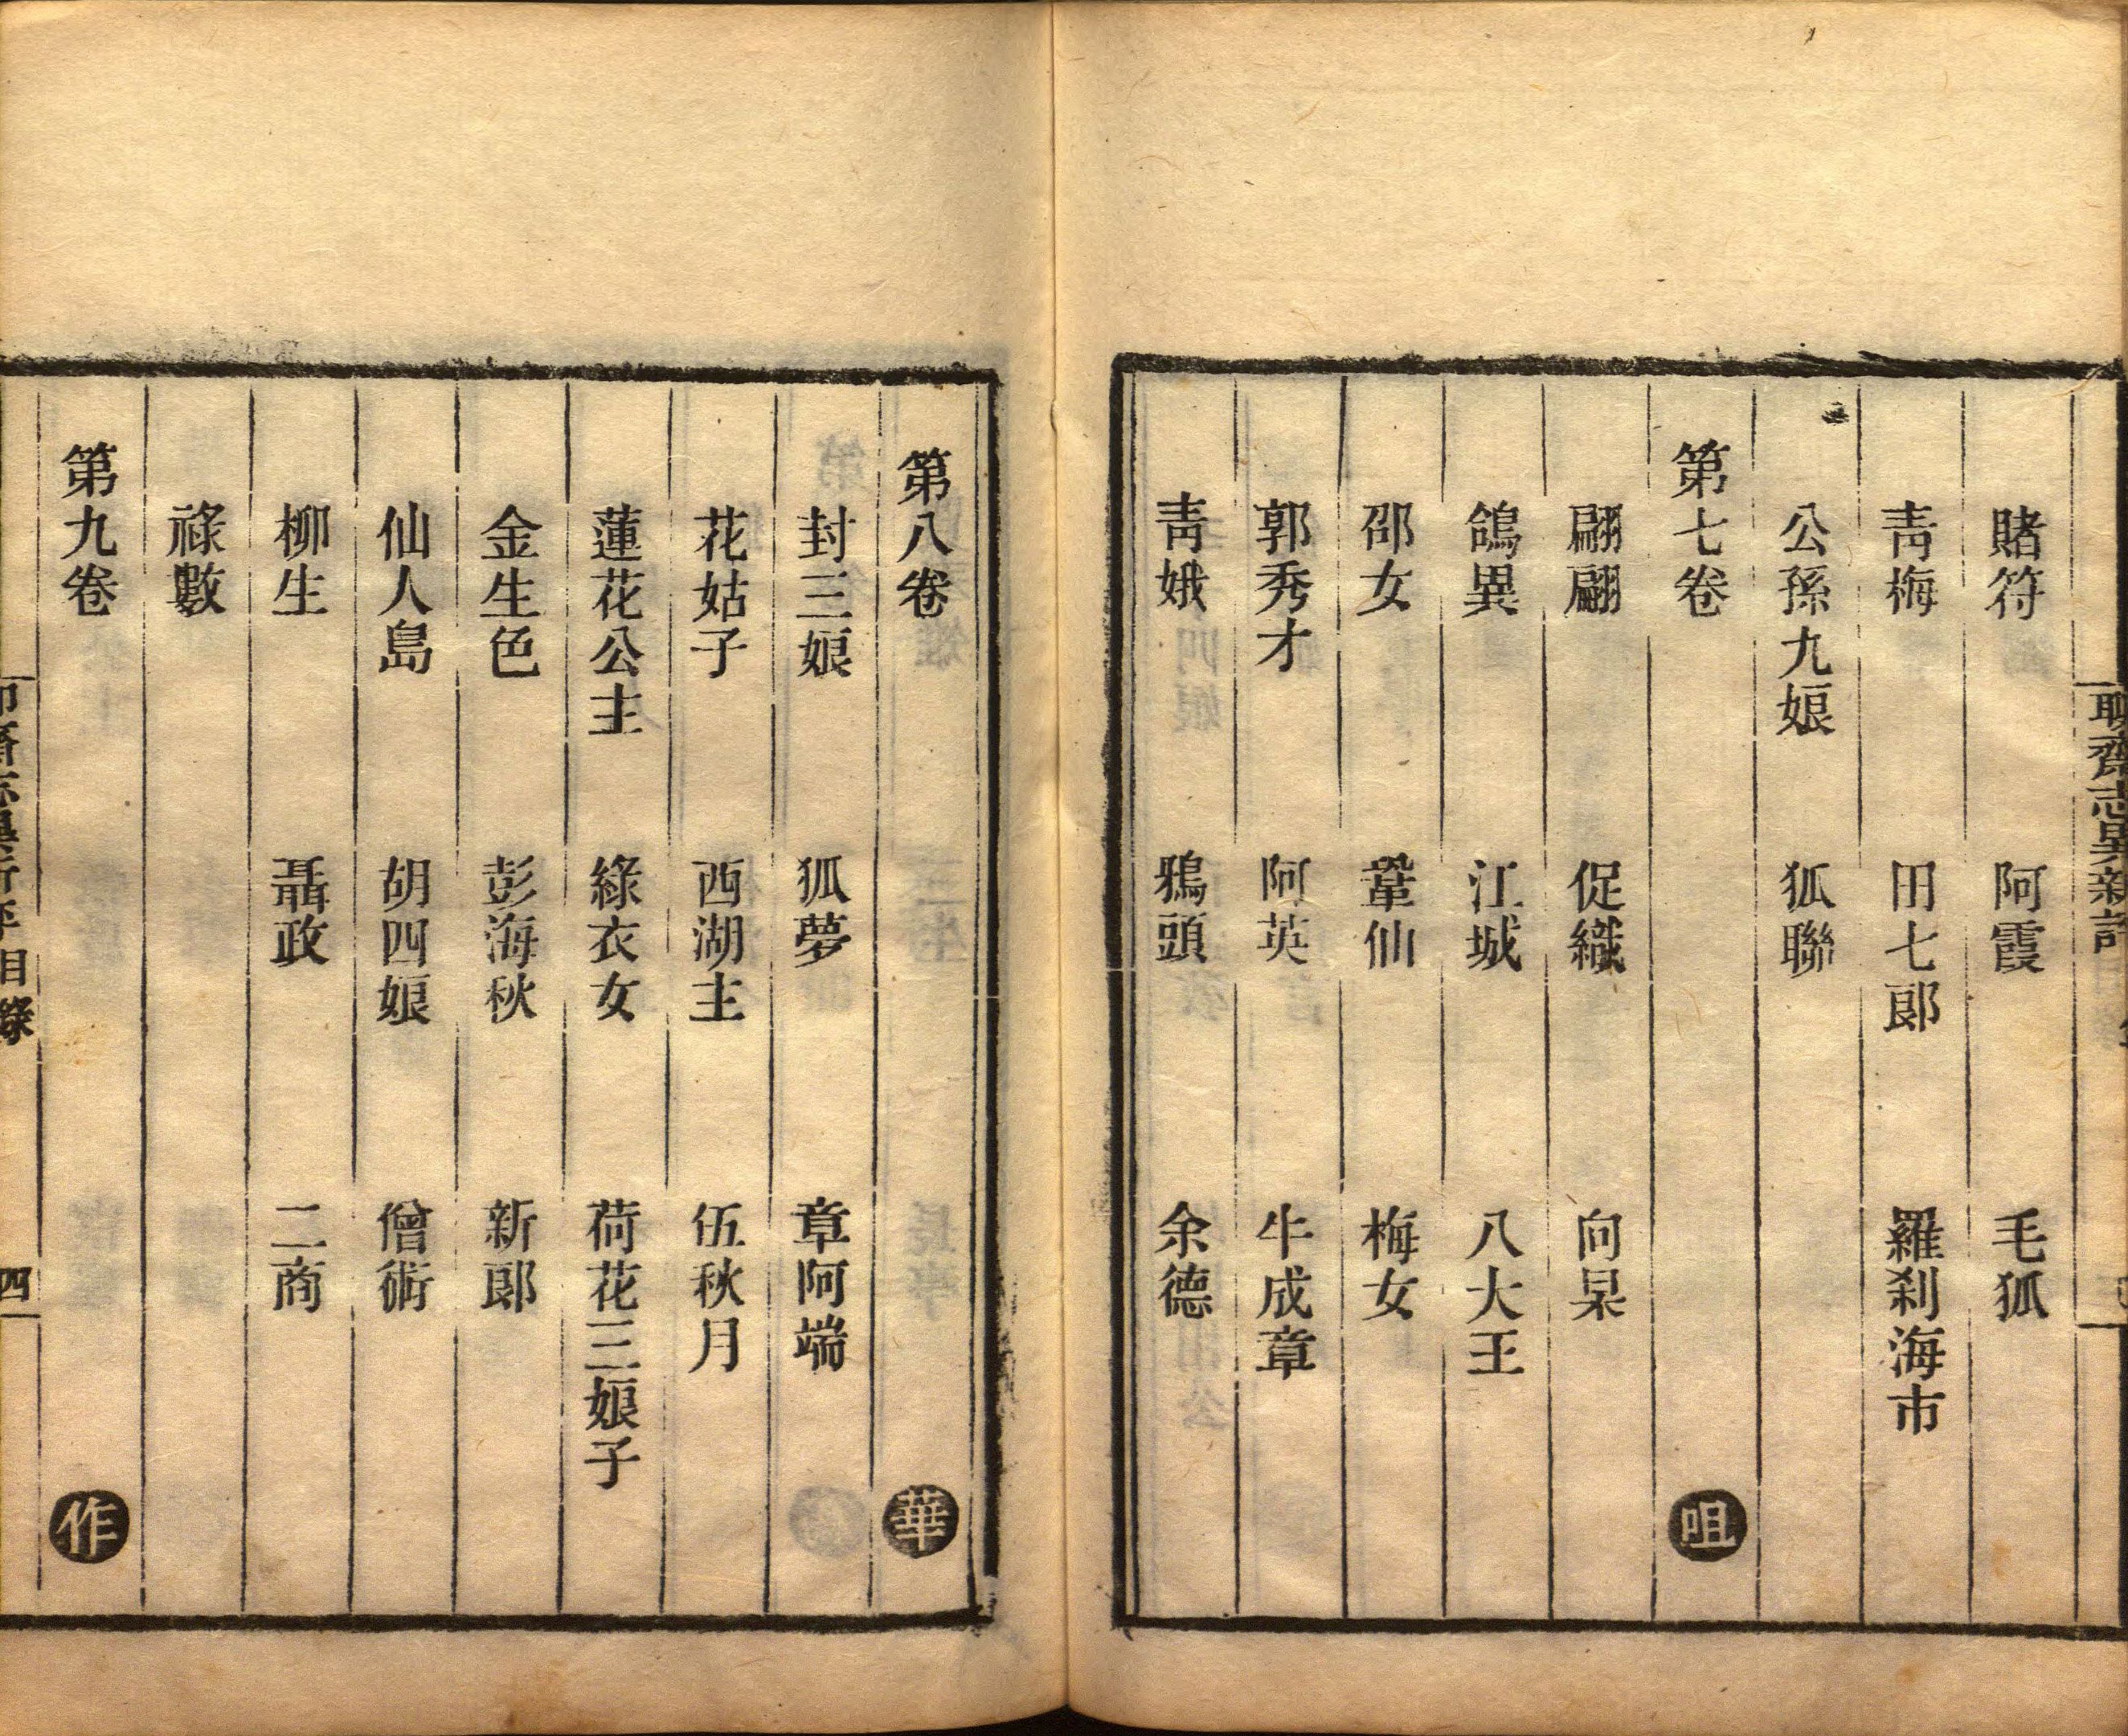 聊齋志異新評
賭符　阿霞　毛狐
青梅　田七郎　羅刹海市
公孫九娘　狐聯
第七卷　咀
翩翩　促織　向杲
鴿異　江城　八大王
邵女　鞏仙　梅女
郭秀才　阿英　牛成章
青娥　鴉頭　余德
第八卷　華
封三娘　狐夢　章阿端
花姑子　西湖主　伍秋月
蓮花公主　綠衣女　荷花三娘子
金生色　彭海秋　新郎
仙人島　胡四娘　僧術
柳生　聶政　二商
祿數
第九卷　作
聊齋志異新評　目錄　四